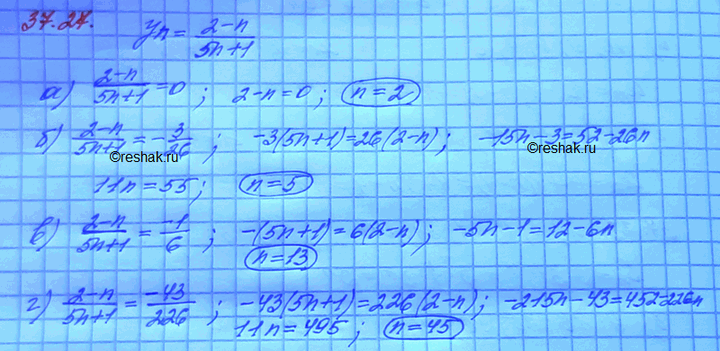 37.27.
yn = (2-n)/(5n+1)
а) (2-n)/(5n+1) = 0 ; 2-n=0 ; n=2
б) (2-n)/(5n+1) = -3/26 ; -3(5n+1)=26(2-n) ; -15n-3=52-26n
©reshak.ru ©reshak.ru
11n=55 ; n=5
в) (2-n)/(5n+1) = -1/6 ; -(5n+1)=6(2-n) ; -5n-1=12-6n
n=13
г) (2-n)/(5n+1) = -43/226 ; -43(5n+1)=226(2-n) ; -215n-43=452-226n
11n=495 ; n=45